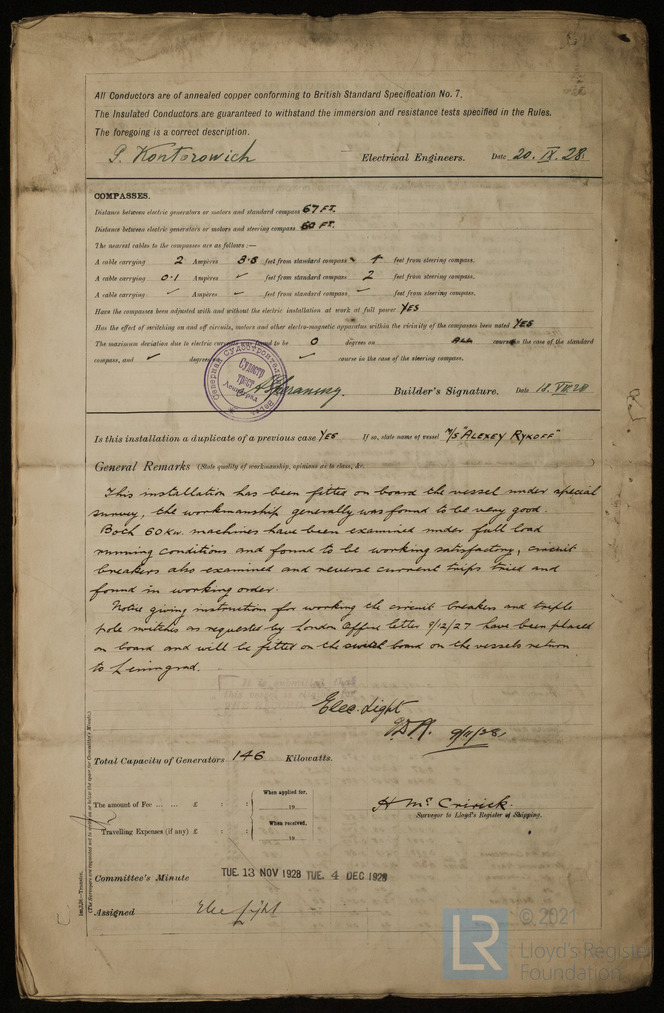 All Conductors are of annealed copper conforming to British Standard Specification No. 7.
The Insulated Conductors are guaranteed to withstand the immersion and resistance tests specified in the Rules.
The foregoing is a correct description.
P. Kontorowich Electrical Engineers. Date 20. IX. 28.
COMPASSES.
Distance between electric generators or motors and standard compass 67 FT.
Distance between electric generators or motors and steering compass 60 FT.
The nearest cables to the compasses are as follows :—
A cable carrying 2 Ampères feet from standard compass feet from steering compass.
A cable carrying 0.1 Ampères ✓ feet from standard compass 2 feet from steering compass.
A cable carrying ✓ Ampères ✓ feet from standard compass ✓ feet from steering compass.
Have the compasses been adjusted with and without the electric installation at work at full power YES
Has the effect of switching on and off circuits, motors and other electro-magnetic apparatus within the vicinity of the compasses been noted YES
The maximum deviation due to electric currents found to be 0 degrees on ALL course in the case of the standard
compass, and ✓ degrees ✓ course in the case of the steering compass.
Судостр
трест
Ленинград
Builder's Signature. Date 18. VIII 28
Is this installation a duplicate of a previous case YES If so, state name of vessel M/S "ALEXEY RYKOFF"
General Remarks (State quality of workmanship, opinions as to class, &c. )
This installation has been fitted on board the vessel under special
survey, the workmanship generally was found to be very good.
Both 60 Kw. machines have been examined under full load
running conditions and found to be working satisfactory, circuit
breakers also examined and reverse current trips tried and
found in working order.
Notice giving instruction for working the circuit breakers and triple
pole switches as requested by London Office letter 9/12/27 have been placed
on board and will be fitted on the switch board on the vessels return
to Leningrad.
It is submitted that
this vessel is eligible for
Elec. Light
9/11/28
Total Capacity of Generators 146 Kilowatts.
The amount of Fee ... ... £ : : When applied for, 19
Travelling Expenses (if any) £ : : When received, 19
H Mc Cririck.
Surveyor to Lloyd's Register of Shipping.
Committee's Minute TUE. 13 NOV 1928 TUE. 4 DEC 1928
Assigned Elec Light
1m,2,26.—Transfer.
(The Surveyors are requested not to write on or below the space for Committee's Minute.)
LR
© 2021
Lloyd's Register
Foundation